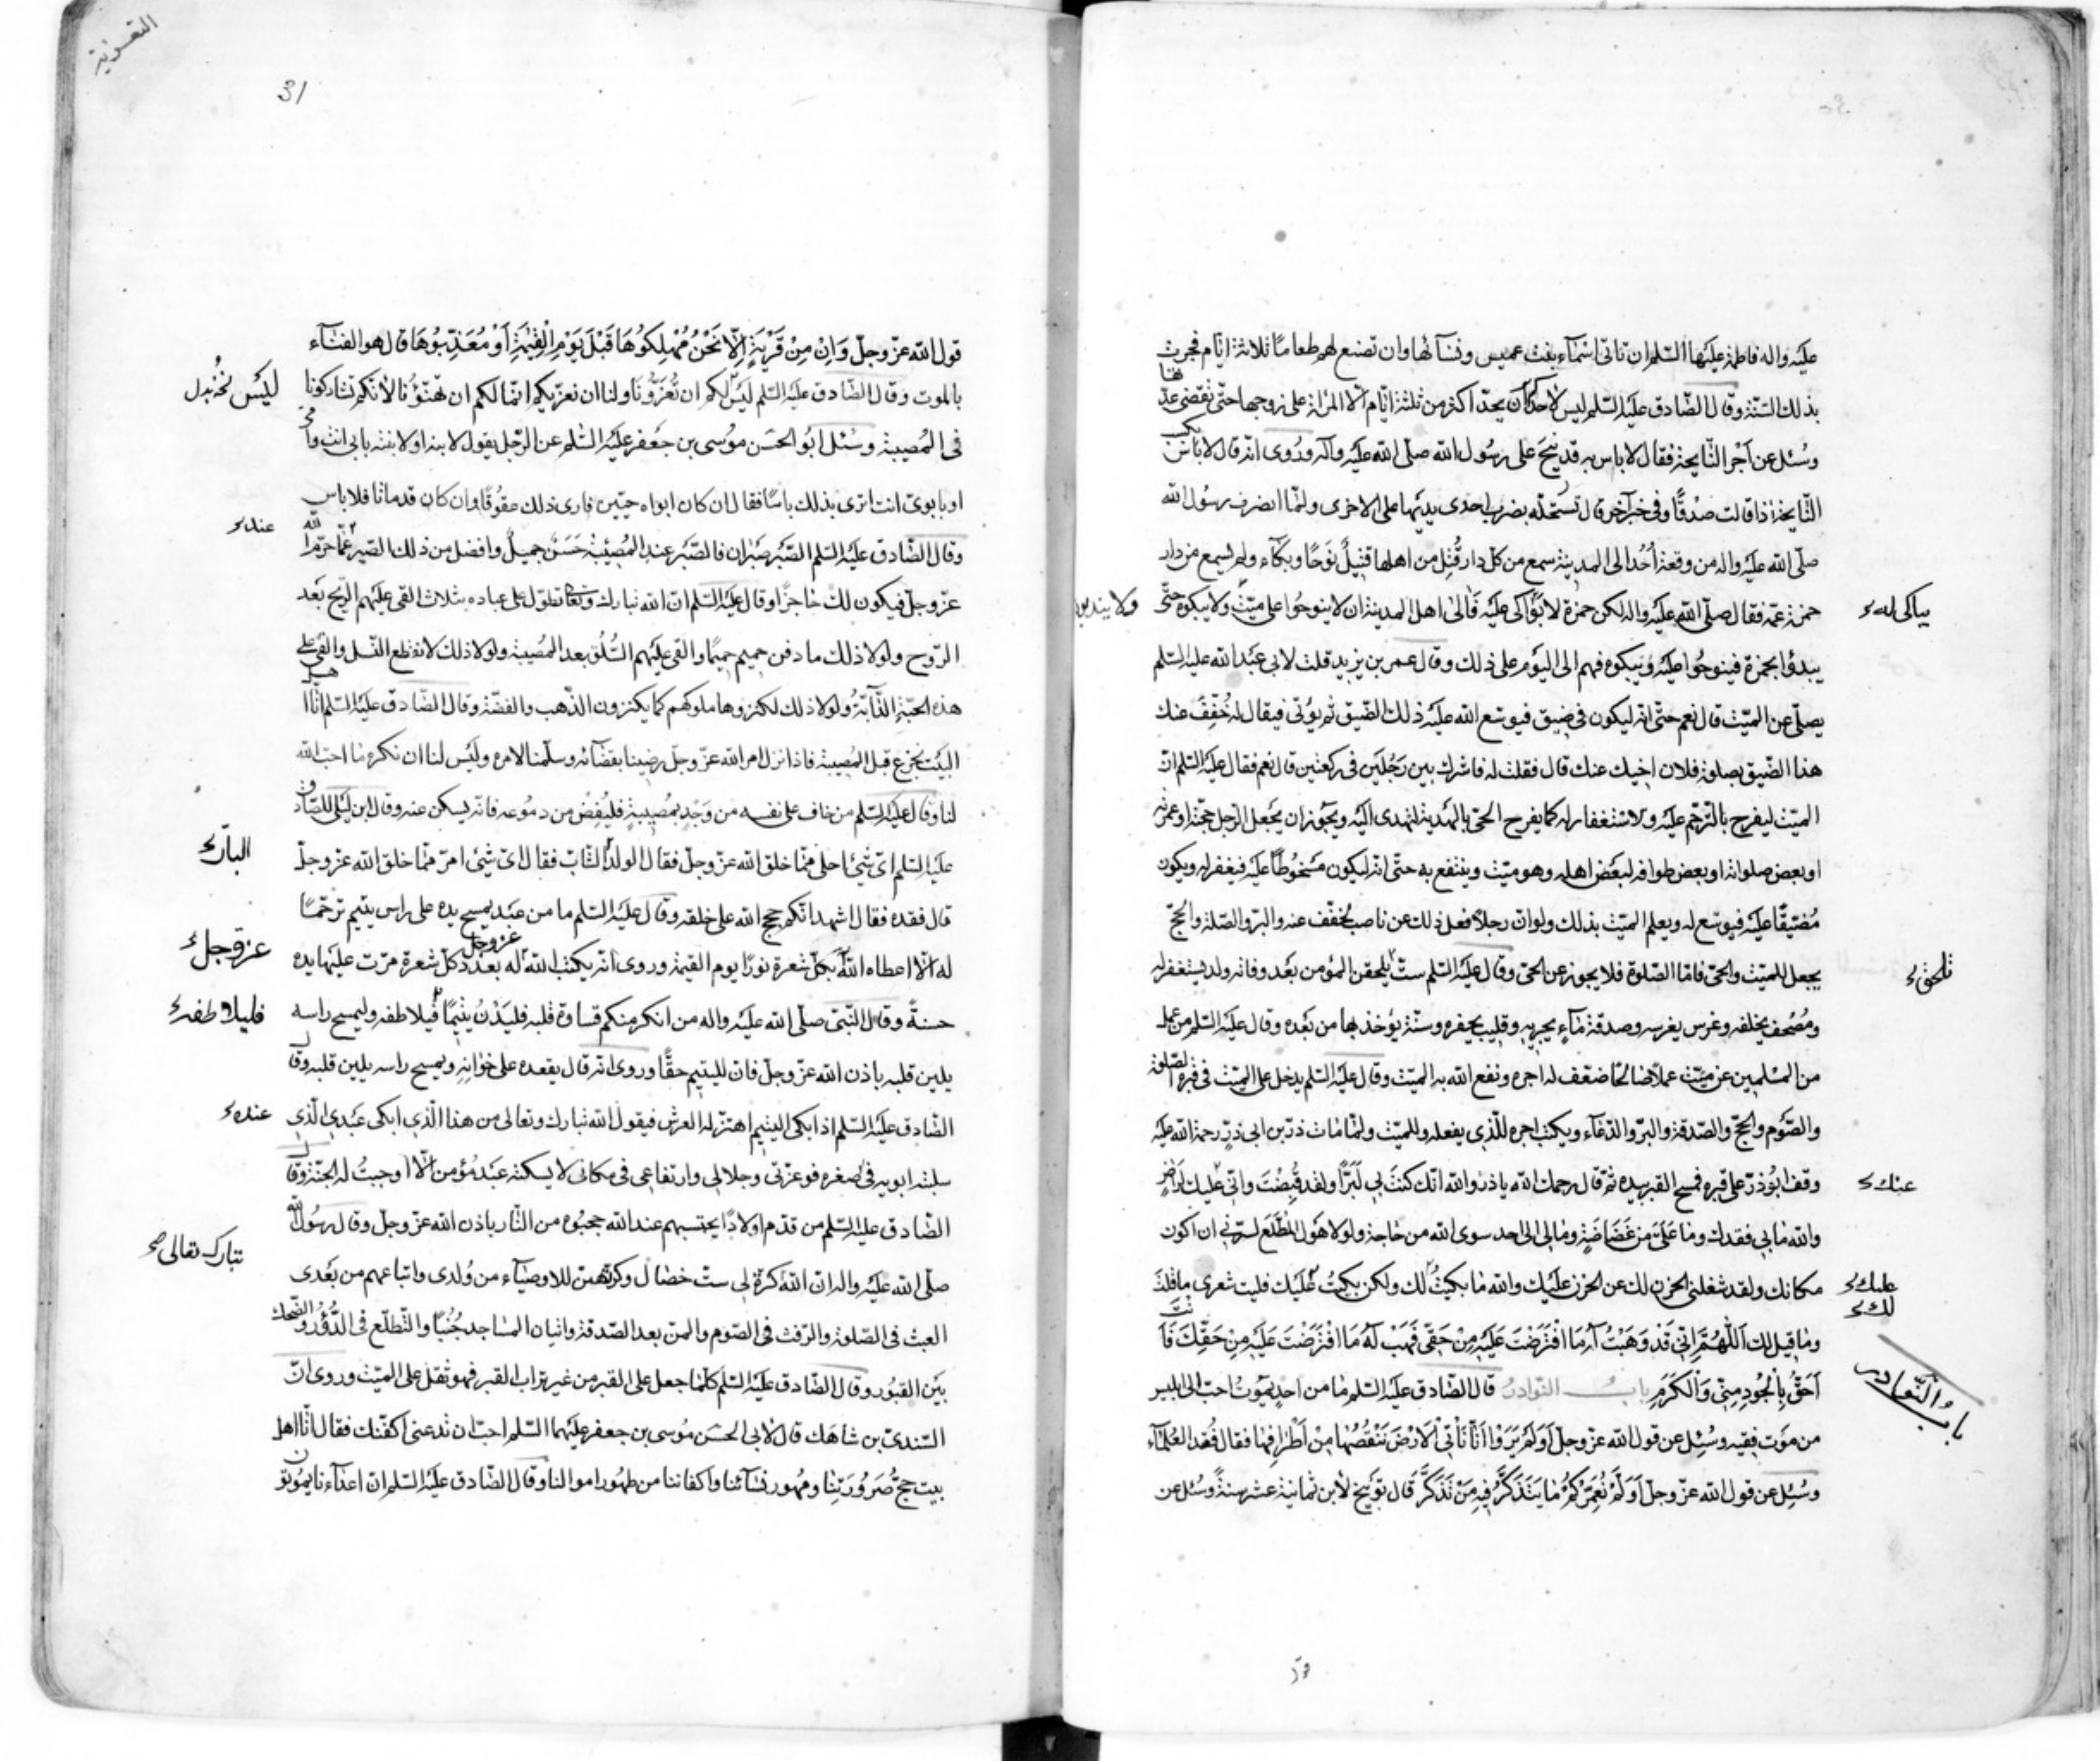 عليه واله فاطمة عليها السّلم ان تاتى اسْمآء بنت عميس ونسآئها وان تصنع لهم طعامًا ثلاثة ايّام فجرت
بذلك السّنّة وقال الصّادق عليه السّلم ليس لاحد ان يحدّ اكثر من ثلثة ايّام الّا المراة على زوجها حتّى تقضى عدّتها
وسُئل عن اجر النّايحة فقال لا باس به قد نيح على رسُول الله صلّى الله عليه وآله ورُوى انّه قال لا باس بكسب
النّايحة اذا قالت صدْقًا وفى خبر آخر قال تستحلّه بضرب احدى يديها على الاخرى ولمّا انصرف رسُول الله
صلّى الله عليه واله من وقعة اُحُد الى المدينة سمع من كلّ دار قُتِل من اهلها قتيلٌ نَوحًا وبكآء ولم يسمع من دار
حمزة عمّه فقال صلّى الله عليه واله لكن حمزة لا بَوَاكى عليه فالى اهل المدينة ان لا ينوحُوا على ميّت ولا يبكوه حتّى
يباكى له
ولا يندبوا
يبدؤا بحمزة فينوحُوا عليه ويبكوه فهم الى اليوم على ذلك وقال عمر بن يزيد قلت لابى عبد الله عليه السّلم
يصلّى عن الميّت قال نعم حتّى انّه ليكون فى ضيق فيوسّع الله عليه ذلك الضّيق ثم يؤتى فيقال له خُفّفَ عنك
هذا الضّيق بصلوة فلان اخيك عنك قال فقلت له فاشرك بين رَجُلَين فى ركعتين قال نعم فقال عليه السّلم انّ
الميّت ليفرح بالتّرحّم عليه والاستغفار له كما يفرح الحىّ بالهديّة تهدى اليه ويجوز ان يجعل الرّجل حجّته او عمرته
او بعض صلواته او بعض طوافه لبعض اهله وهو ميّت وينتفع به حتّى انّه ليكون مسْخُوطًا عليه فيغفر له ويكون
مُضيّقًا عليه فيوسّع له ويعلم الميّت بذلك ولو انّ رجلًا فعل ذلك عن ناصب لخفّف عنه والبرّ والصّلة والحجّ
يجعل للميّت والحىّ فامّا الصّلوة فلا يجوز عن الحىّ وقال عليه السّلم ستّ يلحقن المؤمن بعد وفاته ولد يستغفر له
تلحق
ومُصْحف يخلّفه وغرس يغرسه وصدقة مآء يجريه وقليب يحفره وسنّة يؤخذ بها من بعده وقال عليه السّلم من عمل
من المسْلمين عن ميّت عملًا صالحًا ضعّف له اجره ونفع الله به الميّت وقال عليه السّلم يدخل على الميّت فى قبره الصّلوة
والصّوم والحجّ والصّدقة والبرّ والدّعآء ويكتب اجره للّذى يفعله وللميّت ولمّا مات ذرّ بن ابى ذرّ رحمة الله عليه
وقف ابُو ذرّ على قبره فمسح القبر بيده ثمّ قال رحمك الله يا ذرّ والله انّك كنتَ بى لَبَرًّا ولقد قُبضْتَ وانّى عليك لَراضٍ
عنك
والله ما بى فقدك وما علَىّ من غَضَاضَةٍ وما لى الى احد سوى الله من حاجة ولولا هَول المُطّلَع لسرّنى ان اكون
مكانك ولقد شغلنى الحزن لك عن الحزن عليك والله ما بكيتُ لك ولكن بكيتُ عليك فليت شعرى ما قلتَ
عليك
لك
وما قيل لك اَللّهُمَّ اِنّى قَدْ وَهَبْتُ لَهُ مَا افْتَرَضْتَ عَلَيْهِ مِنْ حَقّى فَهَبْ لَهُ مَا افْتَرَضْتَ عَلَيْهِ مِنْ حَقِّكَ فَاَنْتَ
اَحَقُّ بِالْجُودِ مِنّى وَالْكَرَمِ باب النّوادر قال الصّادق عليه السّلم ما من احدٍ يَمُوتُ احبّ الى ابليس
بابُ النّوادر
من مَوت فقيه وسُئل عن قول الله عزّ وجلّ اَوَلَمْ يَرَوْا اَنّا نَاْتِى الْاَرْضَ نَنْقُصُهَا مِنْ اَطْرَافِهَا فقال فَقْد العُلمَآء
وسُئِل عن قول الله عزّ وجلّ اَوَلَمْ نُعَمِّرْكُمْ مَا يَتَذَكَّرُ فِيهِ مَنْ تَذَكَّرَ قال تَوبيخ لابن ثمانية عشر سنةً وسُئل عن
التعزية
31
قول الله عزّ وجلّ وَاِنْ مِنْ قَرْيَةٍ اِلّا نَحْنُ مُهْلِكُوهَا قَبْلَ يَوْمِ الْقِيٰمَةِ اَوْ مُعَذِّبُوهَا قال هو الفنآء
بالموت وقال الصّادق عليه السّلم ليس لكم ان تُعَزُّونَا ولنا ان نعزّيكم انّما لكم ان تهنّؤنا لانّكم تشاركونا
فى المُصيبة وسُئل ابُو الحسَن موُسى بن جَعفر عليه السّلم عن الرّجل يقول لابنه او لابنته بابى انت وامّى
او بابوىّ انت اترى بذلك باسًا فقال ان كان ابواه حيّين فارى ذلك عقُوقًا وان كان قد ماتا فلا باس
وقال الصّادق عليه السّلم الصّبر صَبْران فالصّبر عند المُصيبة حَسَنٌ جميلٌ وافضل من ذلك الصّبر عمّا حرّم الله
عند
عزّ وجلّ فيكون لك حاجزًا وقال عليه السّلم انّ الله تبارك وتعالى تطوّل على عباده بثلاث القى عليهم الرّيح بَعْد
الرّوح ولولا ذلك ما دفن حميم حميمًا والقى عليهم السُّلُوّ بعد المُصيبة ولولا ذلك لانقطع النّسل والقى على
هذه الحبّة الدّآبّةُ ولولا ذلك لكنزوها ملوكهم كما يكنزون الذّهب والفضّة وقال الصّادق عليه السّلم انّا اهل
البيت نجزع قبل المُصيبة فاذا نزل امر الله عزّ وجلّ رضينا بقضآئه وسلّمنا لامره وليْس لنا ان نكره ما احبّ الله
لنا وقال عليه السّلم من خاف على نفسه من وَجْدٍ بمُصيبةٍ فليُفِضْ من دمُوعه فانّه يسكن عنه وقال ابن ليْلى للصّادق
عليه السّلم اىّ شئ احلى ممّا خلق الله عزّ وجلّ فقال الولد الشّابّ فقال اىّ شئ امرّ ممّا خلق الله عزّ وجلّ
البارّ
قال فقده فقال اشهد انّكم حجج الله على خلقه وقال عليه السّلم ما من عبد يمسح يده على راس يتيم ترحّمًا
له الّا اعطاه الله بكلّ شعرة نورًا يوم القيمة وروى انّه يكتب الله عزّ وجلّ له بعدد كلّ شعرة مرّت عليها يده
عزّ وجل
حسنةً وقال النّبىّ صلّى الله عليه واله من انكر منكم قساوة قلبه فليَدْنُ يتيمًا فيلاطفه وليمسح راسه
فليلاطفه
يلين قلبه باذن الله عزّ وجلّ فانّ لليتيم حقًّا وروى انّه قال يقعده على خوَانه ويمسح راسه يلين قلبه وقال
الصّادق عليه السّلم اذا بكى اليتيم اهتزّ له العرش فيقول الله تبارك وتعالى من هذا الّذى ابكى عبْدى الّذى
عنده
سلبته ابويه فى صغره فوعزّتى وجلالى وارتفاعى فى مكانى لا يسكته عبد مُؤمن الّا اوجبتُ له الجنّة وقال
الصّادق عليه السّلم من قدّم اولادًا يحتسبهم عند الله حجبُوه من النّار باذن الله عزّ وجلّ وقال رسُول الله
صلّى الله عليه واله انّ الله كره لى ستّ خصال وكرهتهنّ للاوصيآء من وُلدى واتباعهم من بعْدى
تبارك تعالى صح
العبث فى الصّلوة والرّفث فى الصّوم والمنّ بعد الصّدقة واتيان المسَاجد جُنُبًا والتّطلّع فى الدُّوُر والضّحك
بيْن القبُور وقال الصّادق عليه السّلم كلّما جعل على القبر من غير تراب القبر فهو ثقل على الميّت وروى انّ
السّندىّ بن شاهَك قال لابى الحسَن موُسى بن جعفر عليهما السّلم احبّ ان تدعنى اكفّنك فقال انّا اهل
بيت حجّ صَرُورَتِنَا ومُهور نسآئنا واكفاننا من طهُور اموالنا وقال الصّادق عليه السّلم انّ اعدآءنا يموُتون